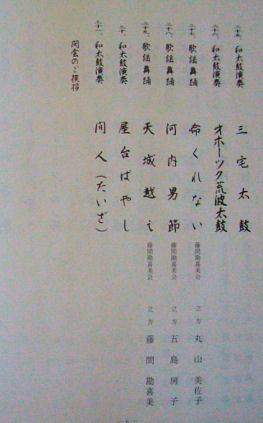 和太鼓演奏 三宅太鼓
和太鼓演奏 オホーツク荒波太鼓
歌謡舞踊 命くれない 藤間勘喜美会 立方 丸山美佐子
歌謡舞踊 河内男節 藤間勘喜美会 立方 五島房子
歌謡舞踊 天城越え 藤間勘喜美会 立方 藤間勘喜美
和太鼓演奏 屋台ばやし
和太鼓演奏 間人(たいざ)
閉会のご挨拶